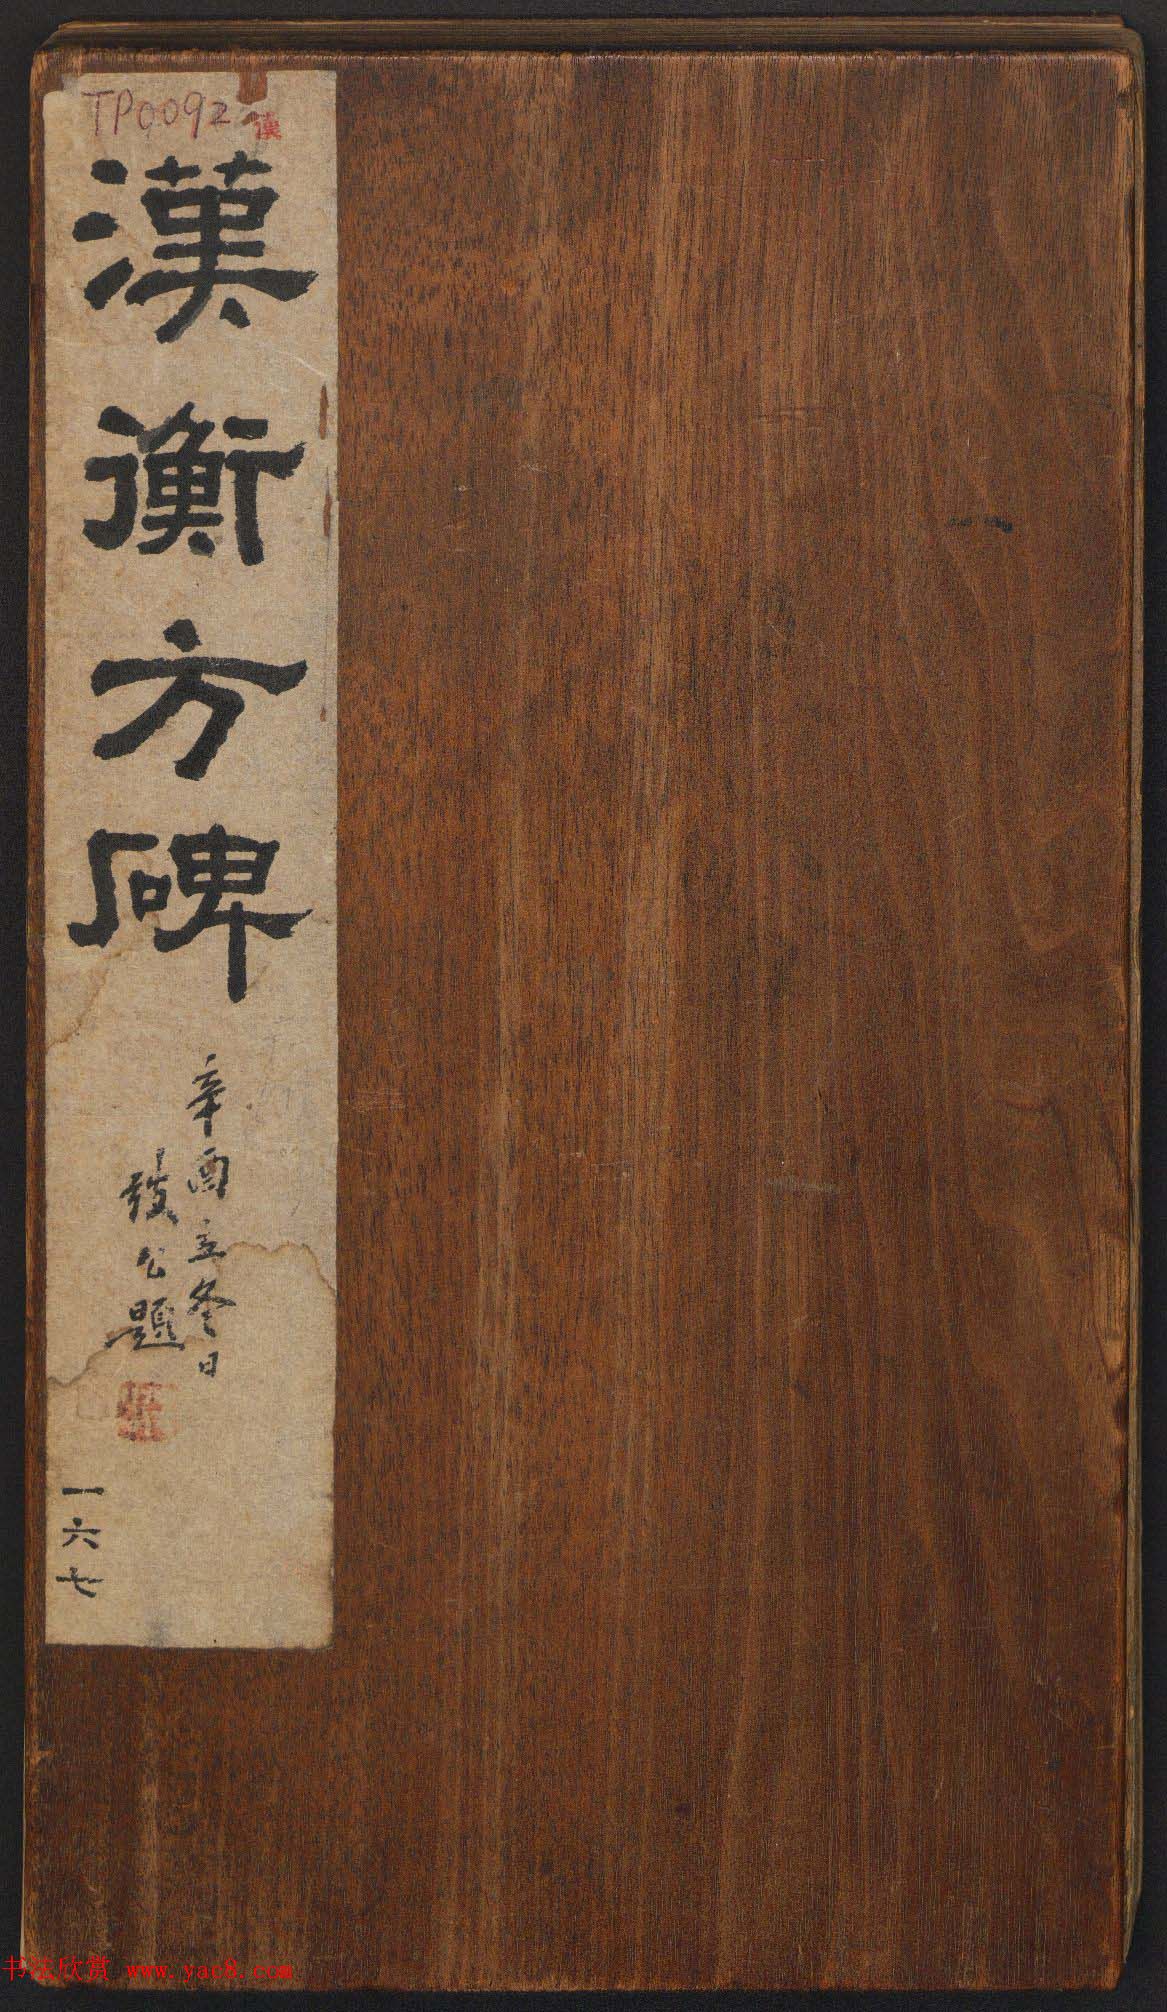 TP0092
漢
漢衡方碑
辛酉立冬日
公題
一六七
书法欣赏 www.yac8.com